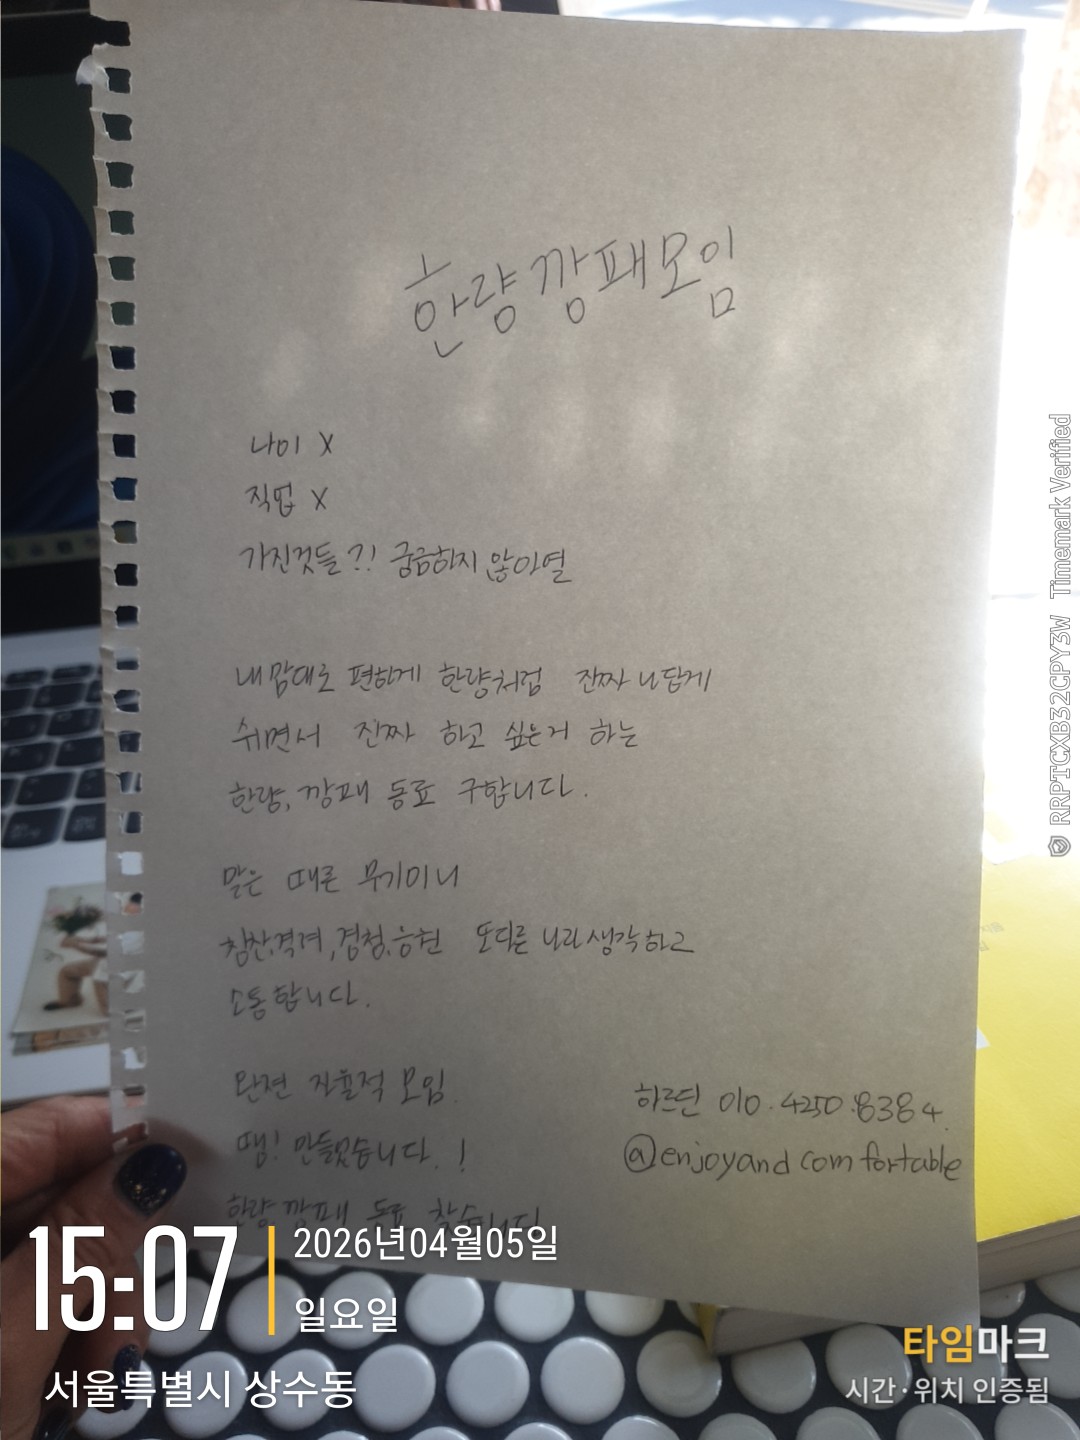 한량깡패모임
나이 X
직업 X
가진것들?! 궁금하지 않아열
내맘대로 편하게 한량처럼 진짜 나답게
쉬면서 진짜 하고 싶은거 하는
한량, 깡패 동료 구합니다.
말은 때론 무기이니
칭찬,격려,경청,응원 또다른 나라 생각하고
소통합니다.
완전 자율적 모임.
땡! 만들었습니다. !
한량 깡패 동료 찾습니다
하르딘 010.4250.8384.
@enjoyand comfortable
15:07
2026년04월05일
일요일
서울특별시 상수동
타임마크
시간·위치 인증됨
RRPTCXB32CPY3W Timemark Verified